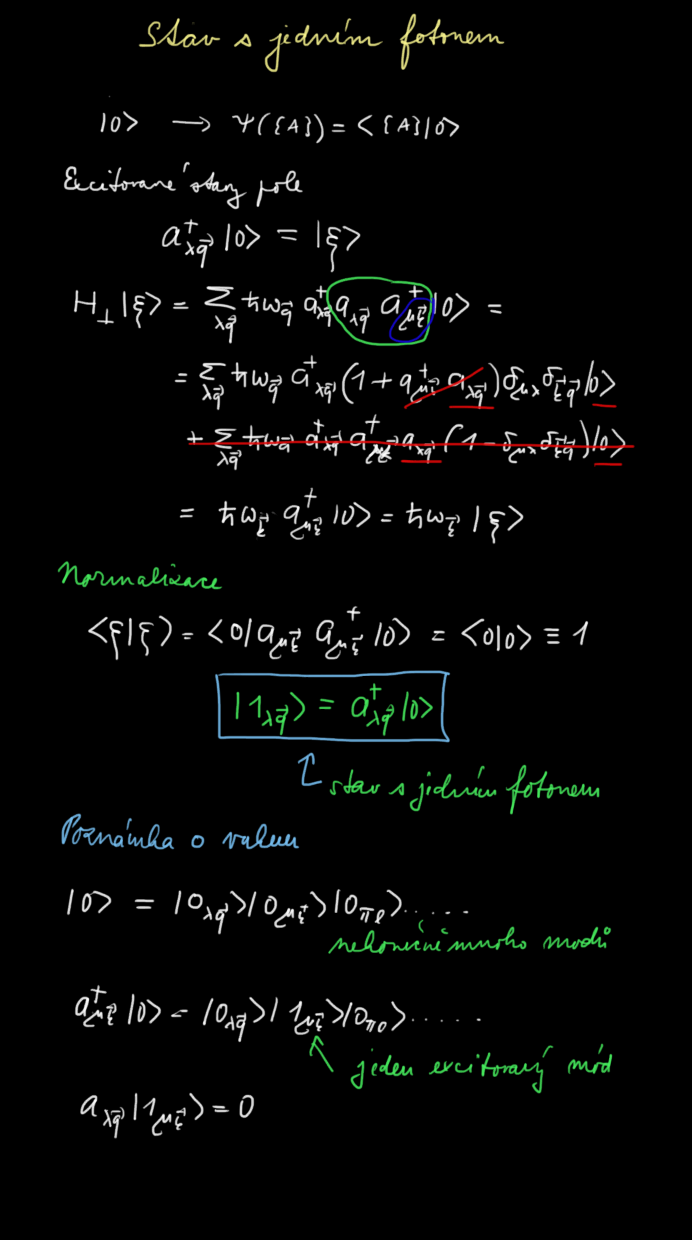 Stav s jedním fotonem
|0> → Ψ({A}) = <{A}|0>
Excitované stavy pole
a⁺_{λq⃗} |0> = |ξ>
H_⊥ |ξ> = Σ_{λq⃗} ħω_{q⃗} a⁺_{λq⃗} a_{λq⃗} a⁺_{μξ⃗} |0> =
= Σ_{λq⃗} ħω_{q⃗} a⁺_{λq⃗} (1 + a⁺_{μξ⃗} a_{λq⃗}) δ_{μλ} δ_{ξ⃗q⃗} |0>
+ Σ_{λq⃗} ħω_{q⃗} a⁺_{λq⃗} a⁺_{μξ⃗} a_{λq⃗} (1 - δ_{μλ} δ_{ξ⃗q⃗}) |0>
= ħω_{ξ⃗} a⁺_{μξ⃗} |0> = ħω_{ξ⃗} |ξ>
Normalizace
<ξ|ξ> = <0| a_{μξ⃗} a⁺_{μξ⃗} |0> = <0|0> ≡ 1
|1_{λq⃗}> = a⁺_{λq⃗} |0>
stav s jedním fotonem
Poznámka o vakuu
|0> = |0_{λq⃗}>|0_{μξ⃗}>|0_{πℓ}>.....
nekonečně mnoho modů
a⁺_{μξ⃗} |0> = |0_{λq⃗}>|1_{μξ⃗}>|0_{πο}>.....
jeden excitovaný mód
a_{λq⃗} |1_{μξ⃗}> = 0